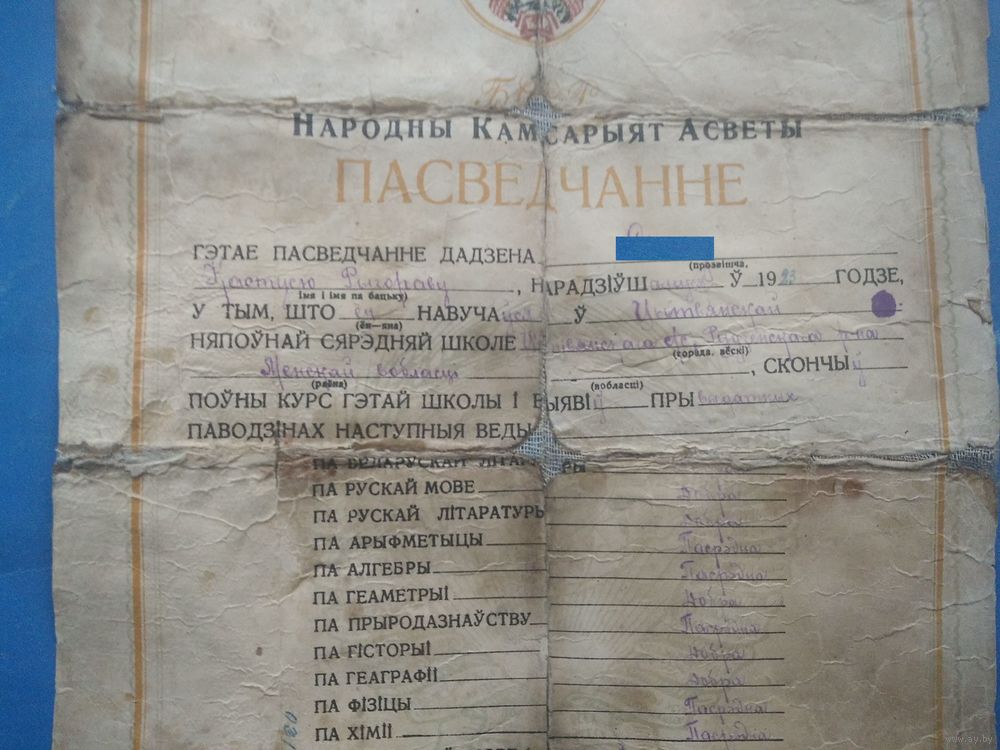 БССР
НАРОДНЫ КАМІСАРЫЯТ АСВЕТЫ
ПАСВЕДЧАННЕ
ГЭТАЕ ПАСВЕДЧАННЕ ДАДЗЕНА
(прозвішча,
Кастусю Рыгораву, НАРАДЗІЎШ Ў 1923 ГОДЗЕ,
імя і імя па бацьку)
У ТЫМ, ШТО ён НАВУЧАЎСЯ Ў
(ён—яна)
НЯПОЎНАЙ СЯРЭДНЯЙ ШКОЛЕ
(горада, вёскі)
Менскай вобласці, СКОНЧЫЎ
(раёна) (вобласці)
ПОЎНЫ КУРС ГЭТАЙ ШКОЛЫ І ВЫЯВІЎ ПРЫ выдатных
ПАВОДЗІНАХ НАСТУПНЫЯ ВЕДЫ
ПА БЕЛАРУСКАЙ ЛІТАРАТУРЫ
ПА РУСКАЙ МОВЕ добра
ПА РУСКАЙ ЛІТАРАТУРЫ добра
ПА АРЫФМЕТЫЦЫ Пасрэдна
ПА АЛГЕБРЫ Пасрэдна
ПА ГЕАМЕТРЫІ добра
ПА ПРЫРОДАЗНАЎСТВУ
ПА ГІСТОРЫІ добра
ПА ГЕАГРАФІІ добра
ПА ФІЗІЦЫ Пасрэдна
ПА ХІМІІ Пасрэдна
www.ay.by